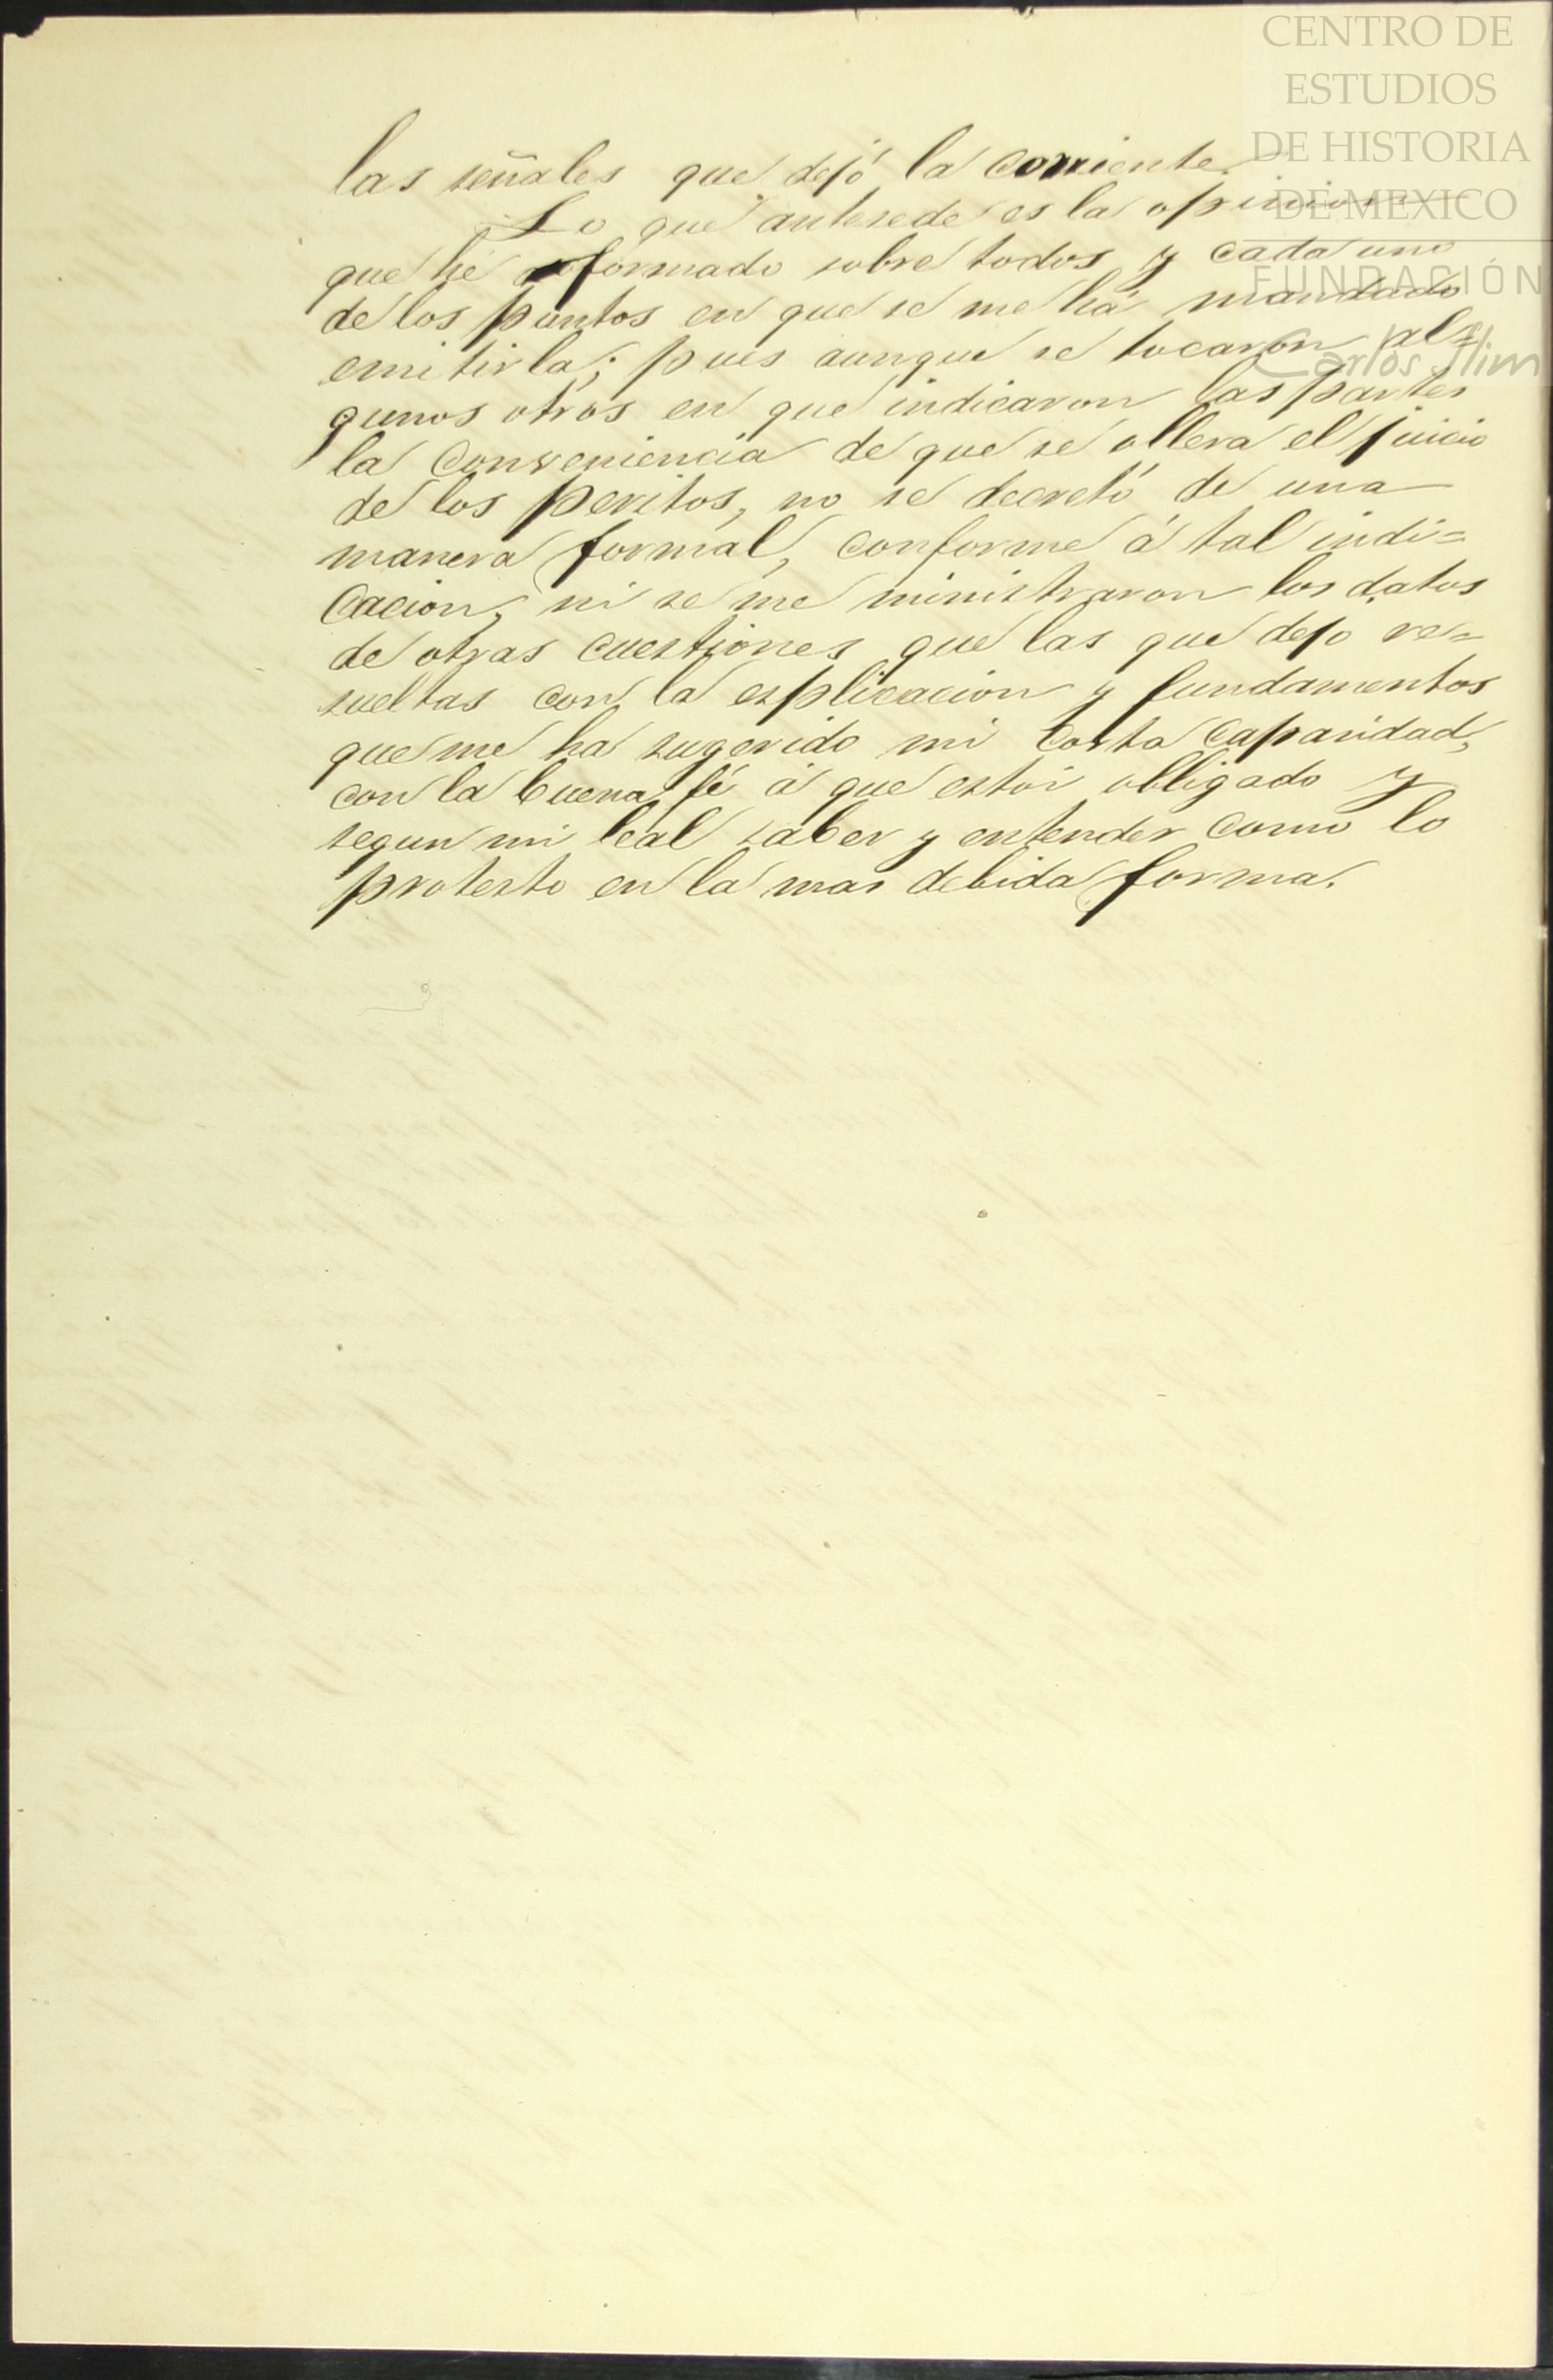 CENTRO DE
ESTUDIOS
DE HISTORIA
DE MEXICO
FUNDACIÓN
Carlos Slim
las señales que dejó la corriente.
Lo que antesede es la opinion
que hé formado sobre todos y cada uno
de los puntos en que se me há mandado
emitirla; pues aunque se tocaron al=
gunos otros en que indicaron las partes
la conveniencia de que se ollera el juicio
de los peritos, no se decretó de una
manera formal, conforme á tal indi=
cacion, ni se me ministraron los datos
de otras cuestiones que las que dejo re=
sueltas con la esplicacion y fundamentos
que me ha sugerido mi corta capasidad,
con la buena fé á que estoi obligado y
segun mi leal saber y entender como lo
protesto en la mas debida forma.